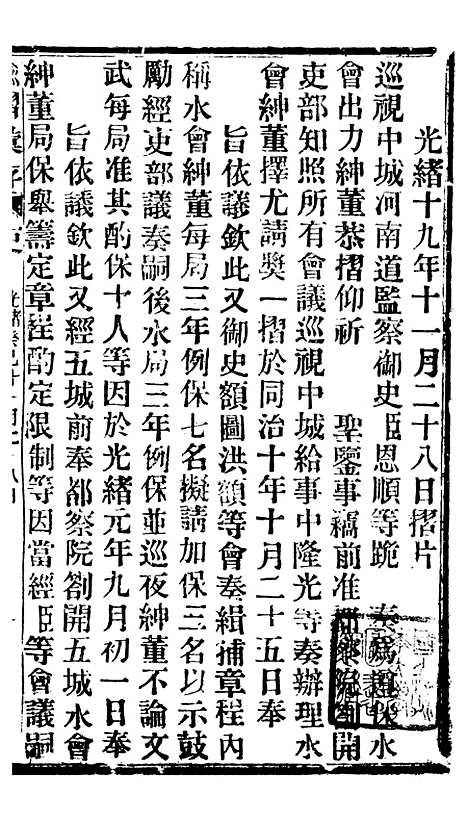 光緒十九年十一月二十八日摺片
巡視中城河南道監察御史臣恩順等跪 奏爲遵保水
會出力紳董恭摺仰祈 聖鑒事竊前准都察院劄開
吏部知照所有會議巡視中城給事中隆光等奏辦理水
會紳董擇尤請獎一摺於同治十年十月二十五日奉
旨依議欽此又御史額圖洪額等會奏緝捕章程內
稱水會紳董每局三年例保七名擬請加保三名以示鼓
勵經吏部議奏嗣後水局三年例保並巡夜紳董不論文
武每局准其酌保十人等因於光緒元年九月初一日奉
旨依議欽此又經五城前奉都察院劄開五城水會
紳董局保舉籌定章程酌定限制等因當經臣等會議嗣
諭摺彙存 光緒癸巳十二月